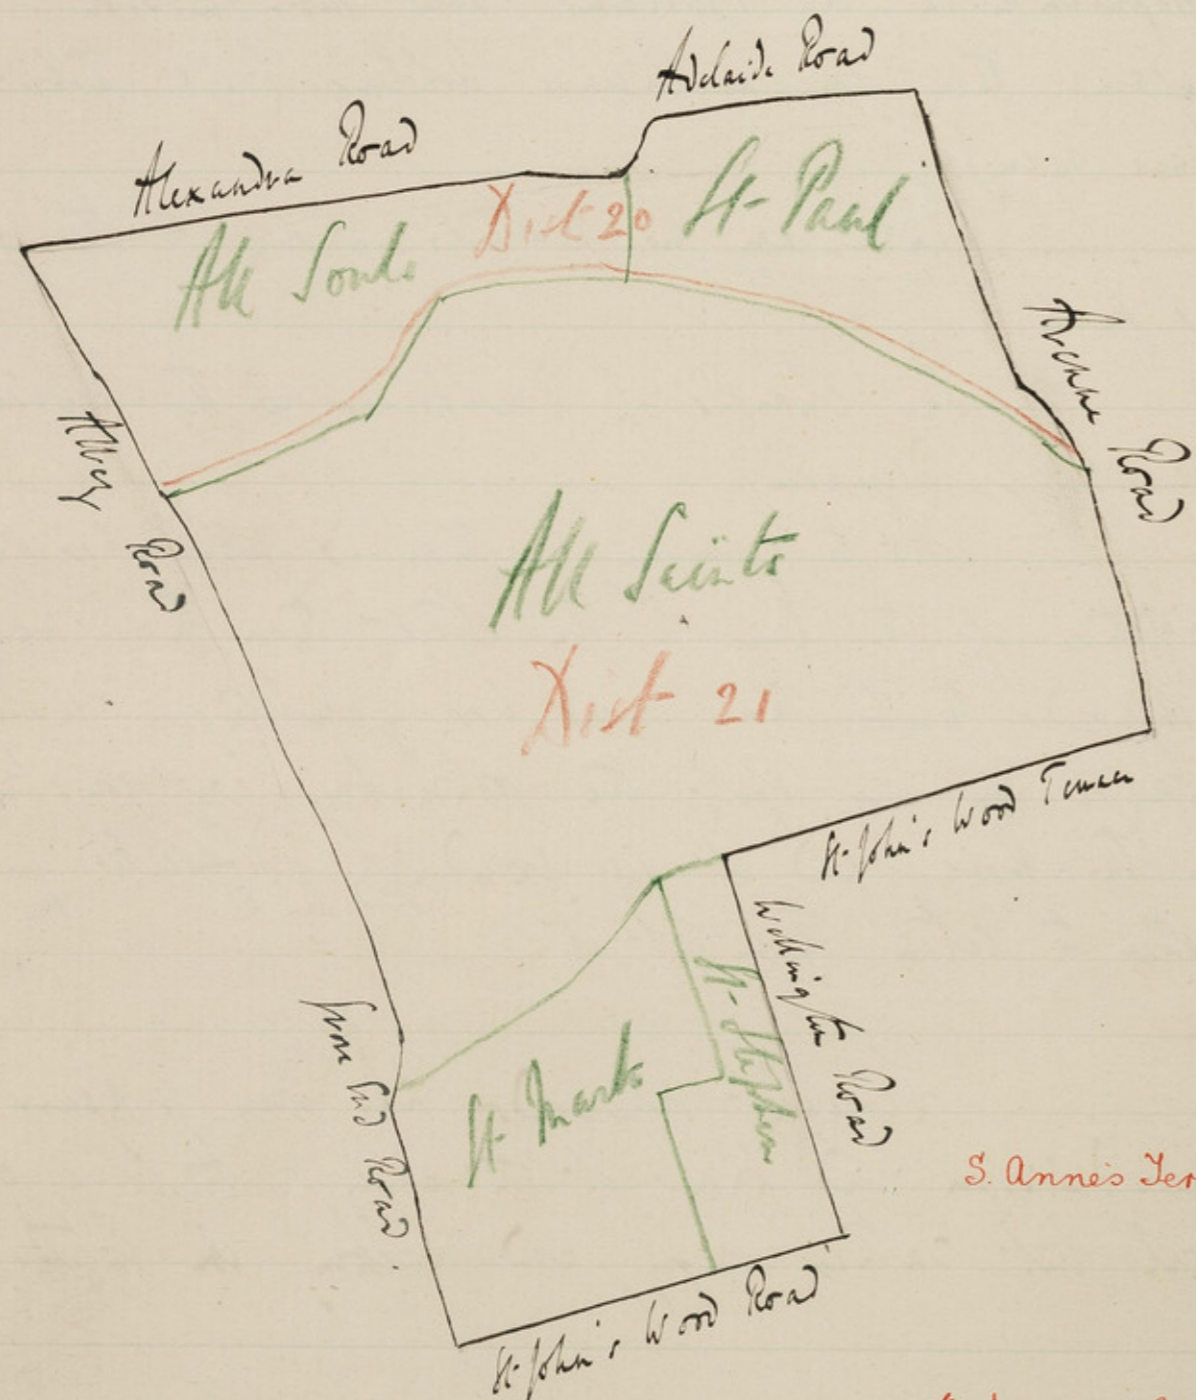 Adelaide Road
Alexandra Road
All Souls
Dist 20
St- Paul
Avenue Road
Abbey Road
All Saints
Dist 21
St- John's Wood Terrace
Wellington Road
St- Stephen
St- Marks
Grove End Road.
S. Anne's Ter
St- John's Wood Road